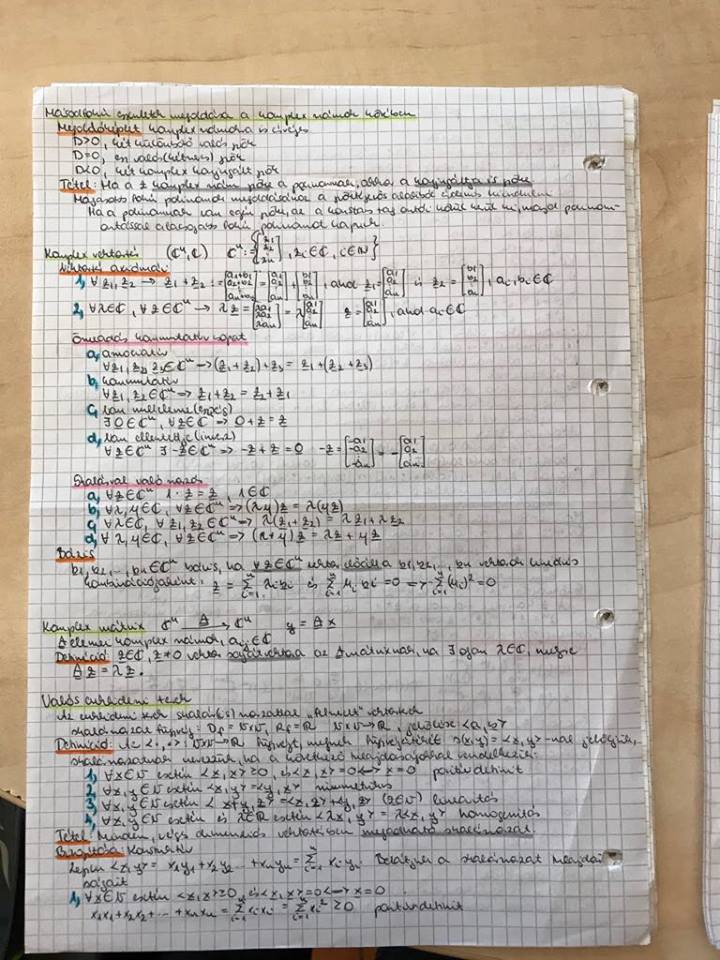 Másodfokú egyenletek megoldása a komplex számok körében
Megoldóképlet komplex számokra is érvényes
D>0, két különböző valós gyök
D=0, egy valós (kétszeres) gyök
D<0, két komplex konjugált gyök
Tétel: Ha a z komplex szám gyöke a polinomnak, akkor a konjugáltja is gyöke.
Magasabb fokú polinomok megoldásánál a gyöktényezős alakból érdemes kiindulni
Ha a polinomnak van egész gyöke, az a konstans tag osztói közül kerül ki, majd polinom-
osztással alacsonyabb fokú polinomot kapunk.
Komplex vektortér (ℂⁿ, ℂ) ℂⁿ := {[z₁ z₂ ⋮ zₙ], zᵢ∈ℂ, i∈ℕ}
Vektortér axiómái:
1, ∀ z₁, z₂ → z₁+z₂ := [a₁+b₁ a₂+b₂ ⋮ aₙ+bₙ] = [a₁ a₂ ⋮ aₙ] + [b₁ b₂ ⋮ bₙ], ahol z₁=[a₁ a₂ ⋮ aₙ] és z₂=[b₁ b₂ ⋮ bₙ], aᵢ, bᵢ∈ℂ
2, ∀λ∈ℂ, ∀z∈ℂⁿ → λz = [λa₁ λa₂ ⋮ λaₙ] = λ[a₁ a₂ ⋮ aₙ] z=[a₁ a₂ ⋮ aₙ], ahol aᵢ∈ℂ
Összeadás kommutatív csoport
a, asszociatív
∀z₁, z₂, z₃∈ℂⁿ → (z₁+z₂)+z₃ = z₁+(z₂+z₃)
b, kommutatív
∀z₁, z₂∈ℂⁿ → z₁+z₂ = z₂+z₁
c, van nulleleme
∃0∈ℂⁿ, ∀z∈ℂⁿ → 0+z=z
d, van ellentettje (inverz)
∀z∈ℂⁿ ∃-z∈ℂⁿ → -z+z=0 -z=[-a₁ -a₂ ⋮ -aₙ] = -[a₁ a₂ ⋮ aₙ]
Skalárral való szorzás
a, ∀z∈ℂⁿ 1·z=z, 1∈ℂ
b, ∀λ,μ∈ℂ, ∀z∈ℂⁿ → (λμ)z = λ(μz)
c, ∀λ∈ℂ, ∀z₁,z₂∈ℂⁿ → λ(z₁+z₂) = λz₁+λz₂
d, ∀λ,μ∈ℂ, ∀z∈ℂⁿ → (λ+μ)z = λz+μz
Bázis
b₁, b₂, ..., bₙ∈ℂⁿ bázis, ha ∀z∈ℂⁿ vektor előáll a b₁, b₂, ..., bₙ vektorok lineáris
kombinációjaként: z = Σᵢ₌₁ⁿ λᵢbᵢ és Σᵢ₌₁ⁿ μᵢbᵢ = 0 => Σᵢ₌₁ⁿ(μᵢ)² = 0
Komplex mátrix ℂⁿ A→ ℂⁿ y = Ax
A elemei komplex számok, aᵢⱼ∈ℂ
Definíció: z∈ℂ, z≠0 vektor sajátvektora az A mátrixnak, ha ∃ olyan λ∈ℂ, melyre
Az = λz.
Valós euklideszi terek
Az euklideszi terek skalár(is) szorzattal „felruházott” vektorterek
skalárszorzat függvény: Df = V×V, Rf = ℝ V×V→ℝ, jelölése <x, y>
Definíció: Az <·,·>: V×V→ℝ függvényt, melynek függvényértékét s(x,y) = <x, y>-nal jelöljük,
skalárszorzatnak nevezzük, ha a következő tulajdonságokkal rendelkezik:
1, ∀x∈V esetén <x, x> ≥0, és <x, x>=0 <=> x=0 pozitív definit
2, ∀x,y∈V esetén <x, y>=<y, x> szimmetrikus
3, ∀x,y∈V esetén <x+y, z> = <x, z>+<y, z> (z∈V) linearitás
4, ∀x,y∈V esetén és λ∈ℝ esetén <λx, y> = λ<x, y> homogenitás
Tétel: Minden véges dimenziós vektortérben megadható skalárszorzat.
Bizonyítás: Konstruktív
Legyen <x, y> = x₁y₁+x₂y₂...+xₙyₙ = Σᵢ₌₁ⁿ xᵢyᵢ. Belátjuk a skalárszorzat tulajdon-
ságait
1, ∀x∈V esetén <x, x>≥0, és <x, x>=0 <=> x=0
x₁x₁+x₂x₂+...+xₙxₙ = Σᵢ₌₁ⁿ xᵢxᵢ = Σᵢ₌₁ⁿ xᵢ² ≥0 pozitív definit